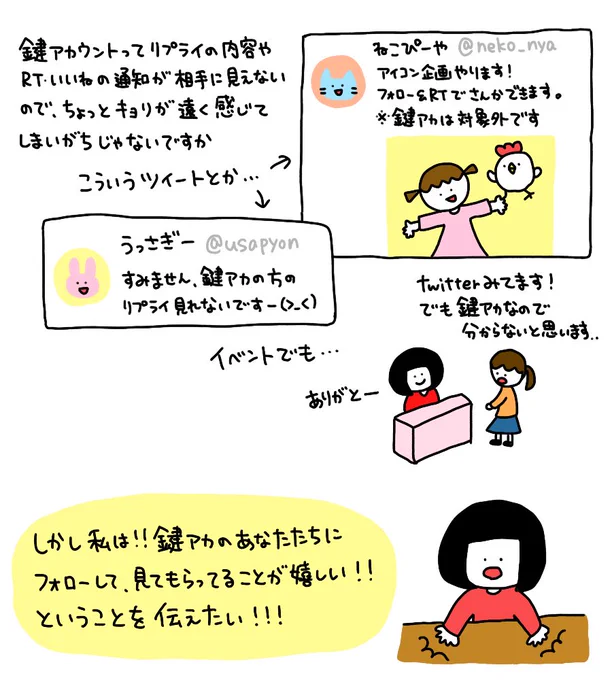 鍵アカウントってリプライの内容や
RT・いいねの通知が相手に見えない
ので、ちょっとキョリが遠く感じて
しまいがちじゃないですか
こういうツイートとか…
ねこぴーや @neko_nya
アイコン企画やります!
フォロー&RTでさんかできます。
※鍵アカは対象外です
うっさぎー @usapyon
すみません、鍵アカの方の
リプライ見れないですー(>_<)
イベントでも…
twitterみてます!
でも鍵アカなので
分からないと思います..
ありがとー
しかし私は!!鍵アカのあなたたちに
フォローして、見てもらってることが嬉しい!!
ということを伝えたい!!!